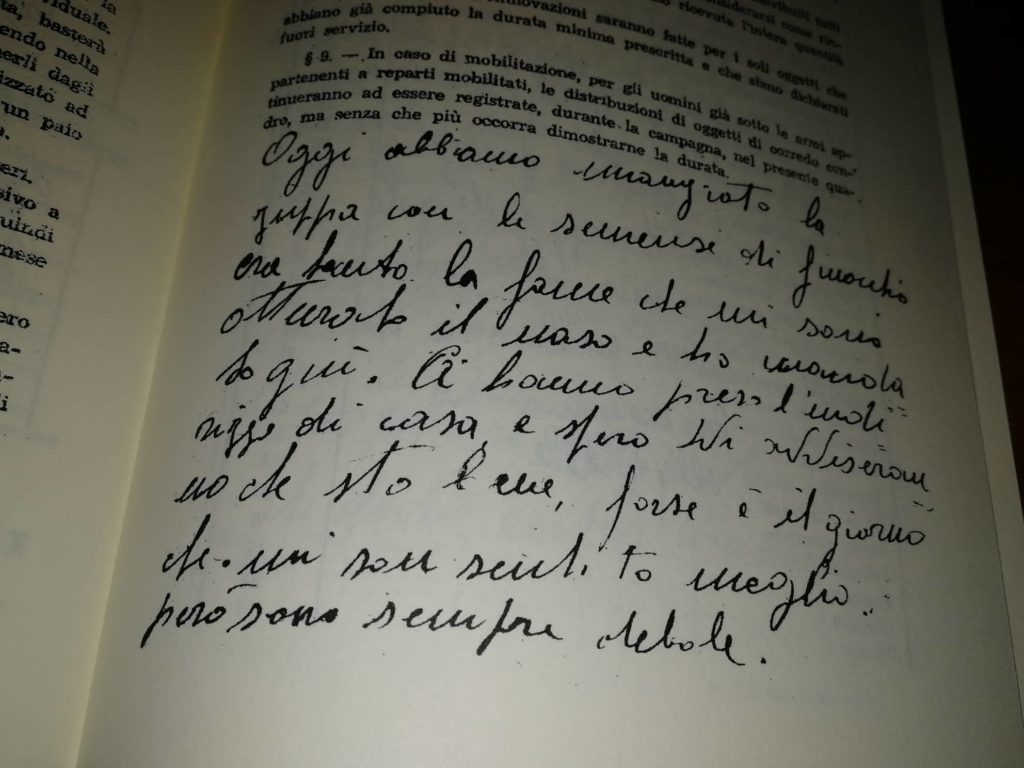 la
viduale.
ta, basterà
endo nella
nerli dagli
izzato ad
un paio
eri,
sivo a
uindi
nese
ero
a-
di
ricevuta l'intera quantità
innovazioni saranno fatte per i soli oggetti che
abbiano già compiuto la durata minima prescritta e che siano dichiarati
fuori servizio.
§ 9. — In caso di mobilitazione, per gli uomini già sotto le armi ap-
partenenti a reparti mobilitati, le distribuzioni di oggetti di corredo con-
tinueranno ad essere registrate, durante la campagna, nel presente qua-
dro, ma senza che più occorra dimostrarne la durata.
Oggi abbiamo mangiato la
zuppa con le semense di finochio
era tanto la fame che mi sono
otturato il naso e ho manda
to giù. Ci hanno preso l'indi
rizzo di casa e spero Vi avviseran
no che sto bene, forse è il giorno
che mi son sentito meglio
però sono sempre debole.